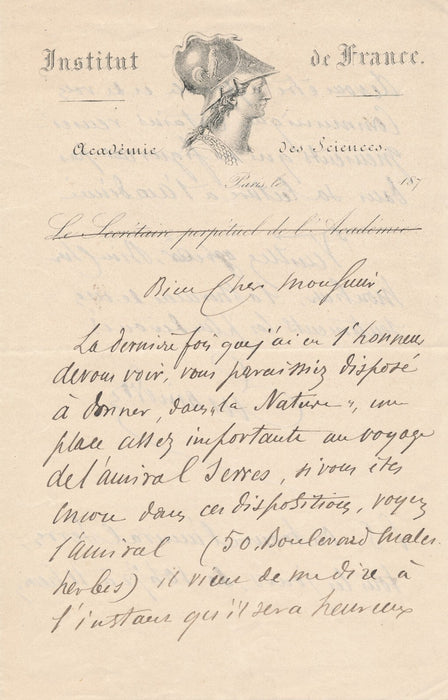 Institut de France.
Académie des Sciences.
Paris, le 187
Le Secrétaire perpétuel de l'Académie
Bien Cher Monsieur,
La dernière fois que j'ai eu l'honneur
de vous voir, vous paraissiez disposé
à donner, dans "la Nature", une
place assez importante au voyage
de l'amiral Serres, si vous êtes
encore dans ces dispositions, voyez
l'amiral (50, Boulevard Males-
herbes) il vient de me dire à
l'instant qu'il sera heureux